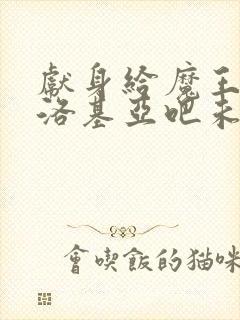 獻身給魔王
洛基亞吧未
會喫飯的猫咪